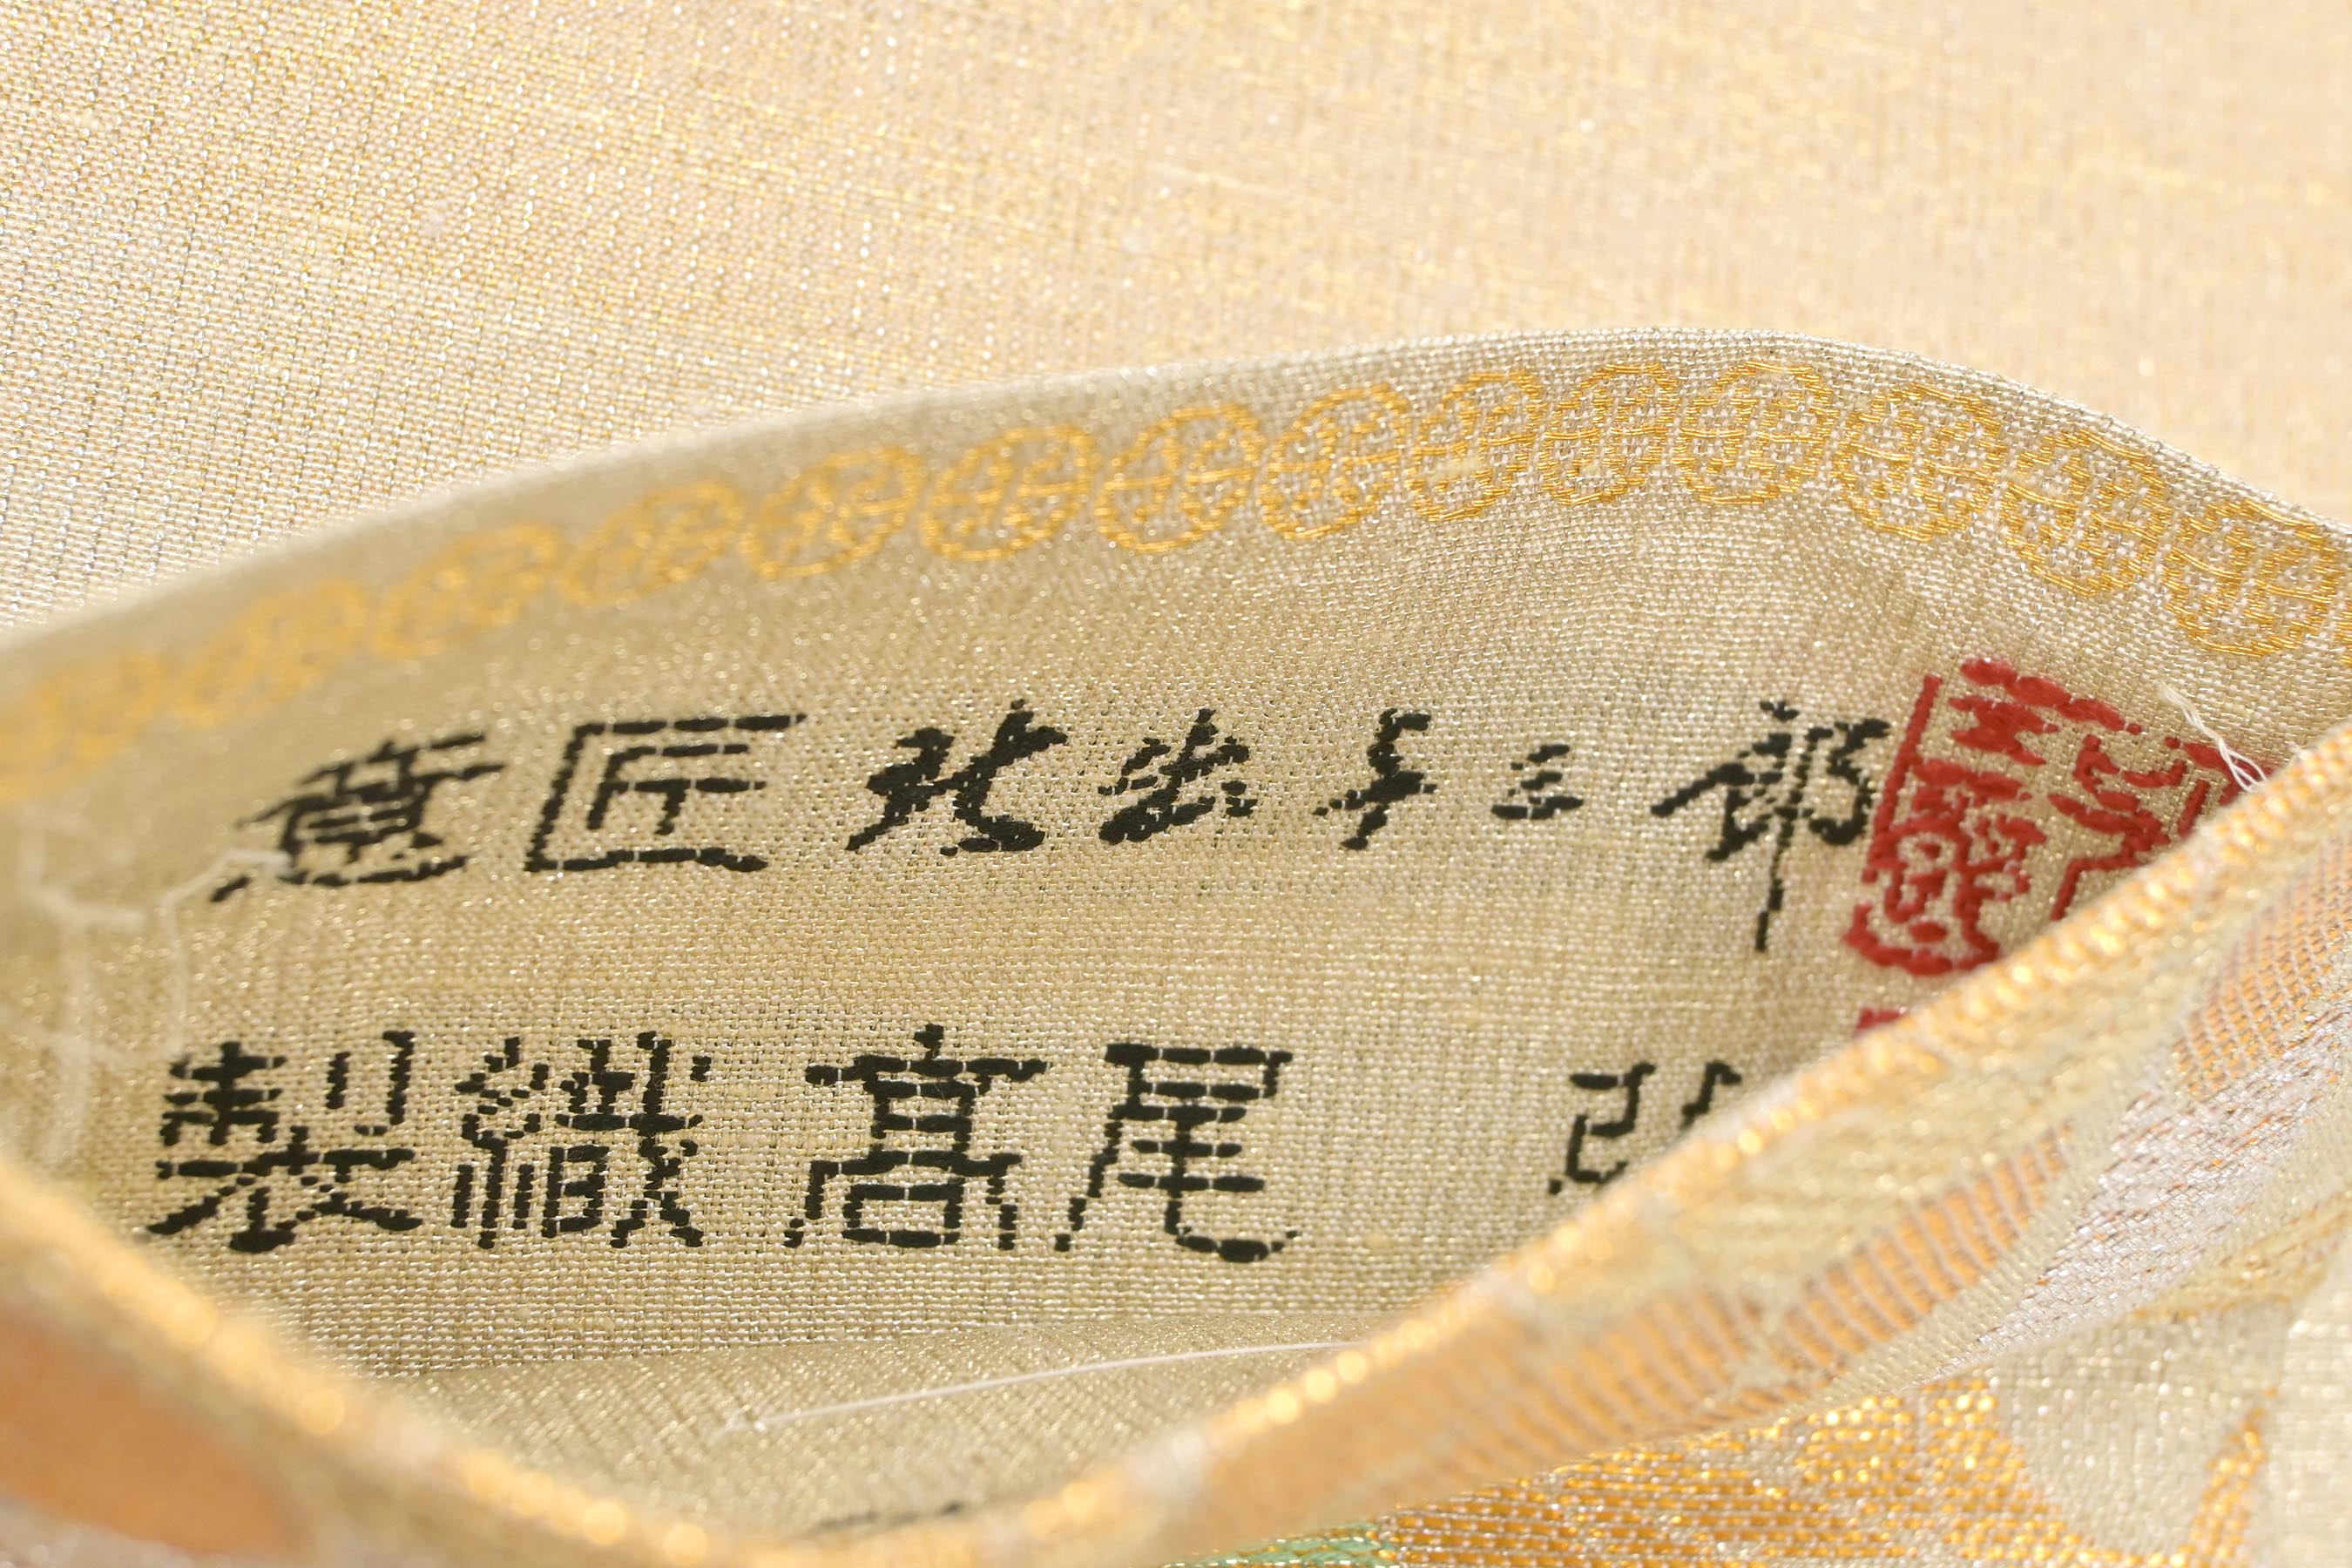 意匠 北出与三郎
製織 髙尾 弘